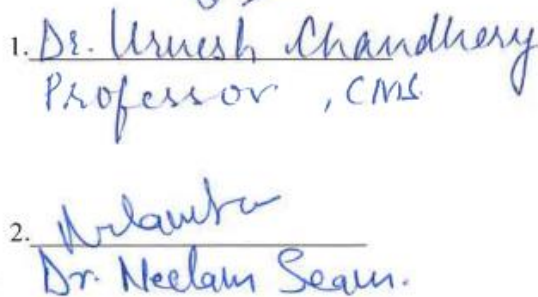 1. Dr. Urnesh Chaudhery
Professor, CMS
2.
Dr. Neelam Seam.